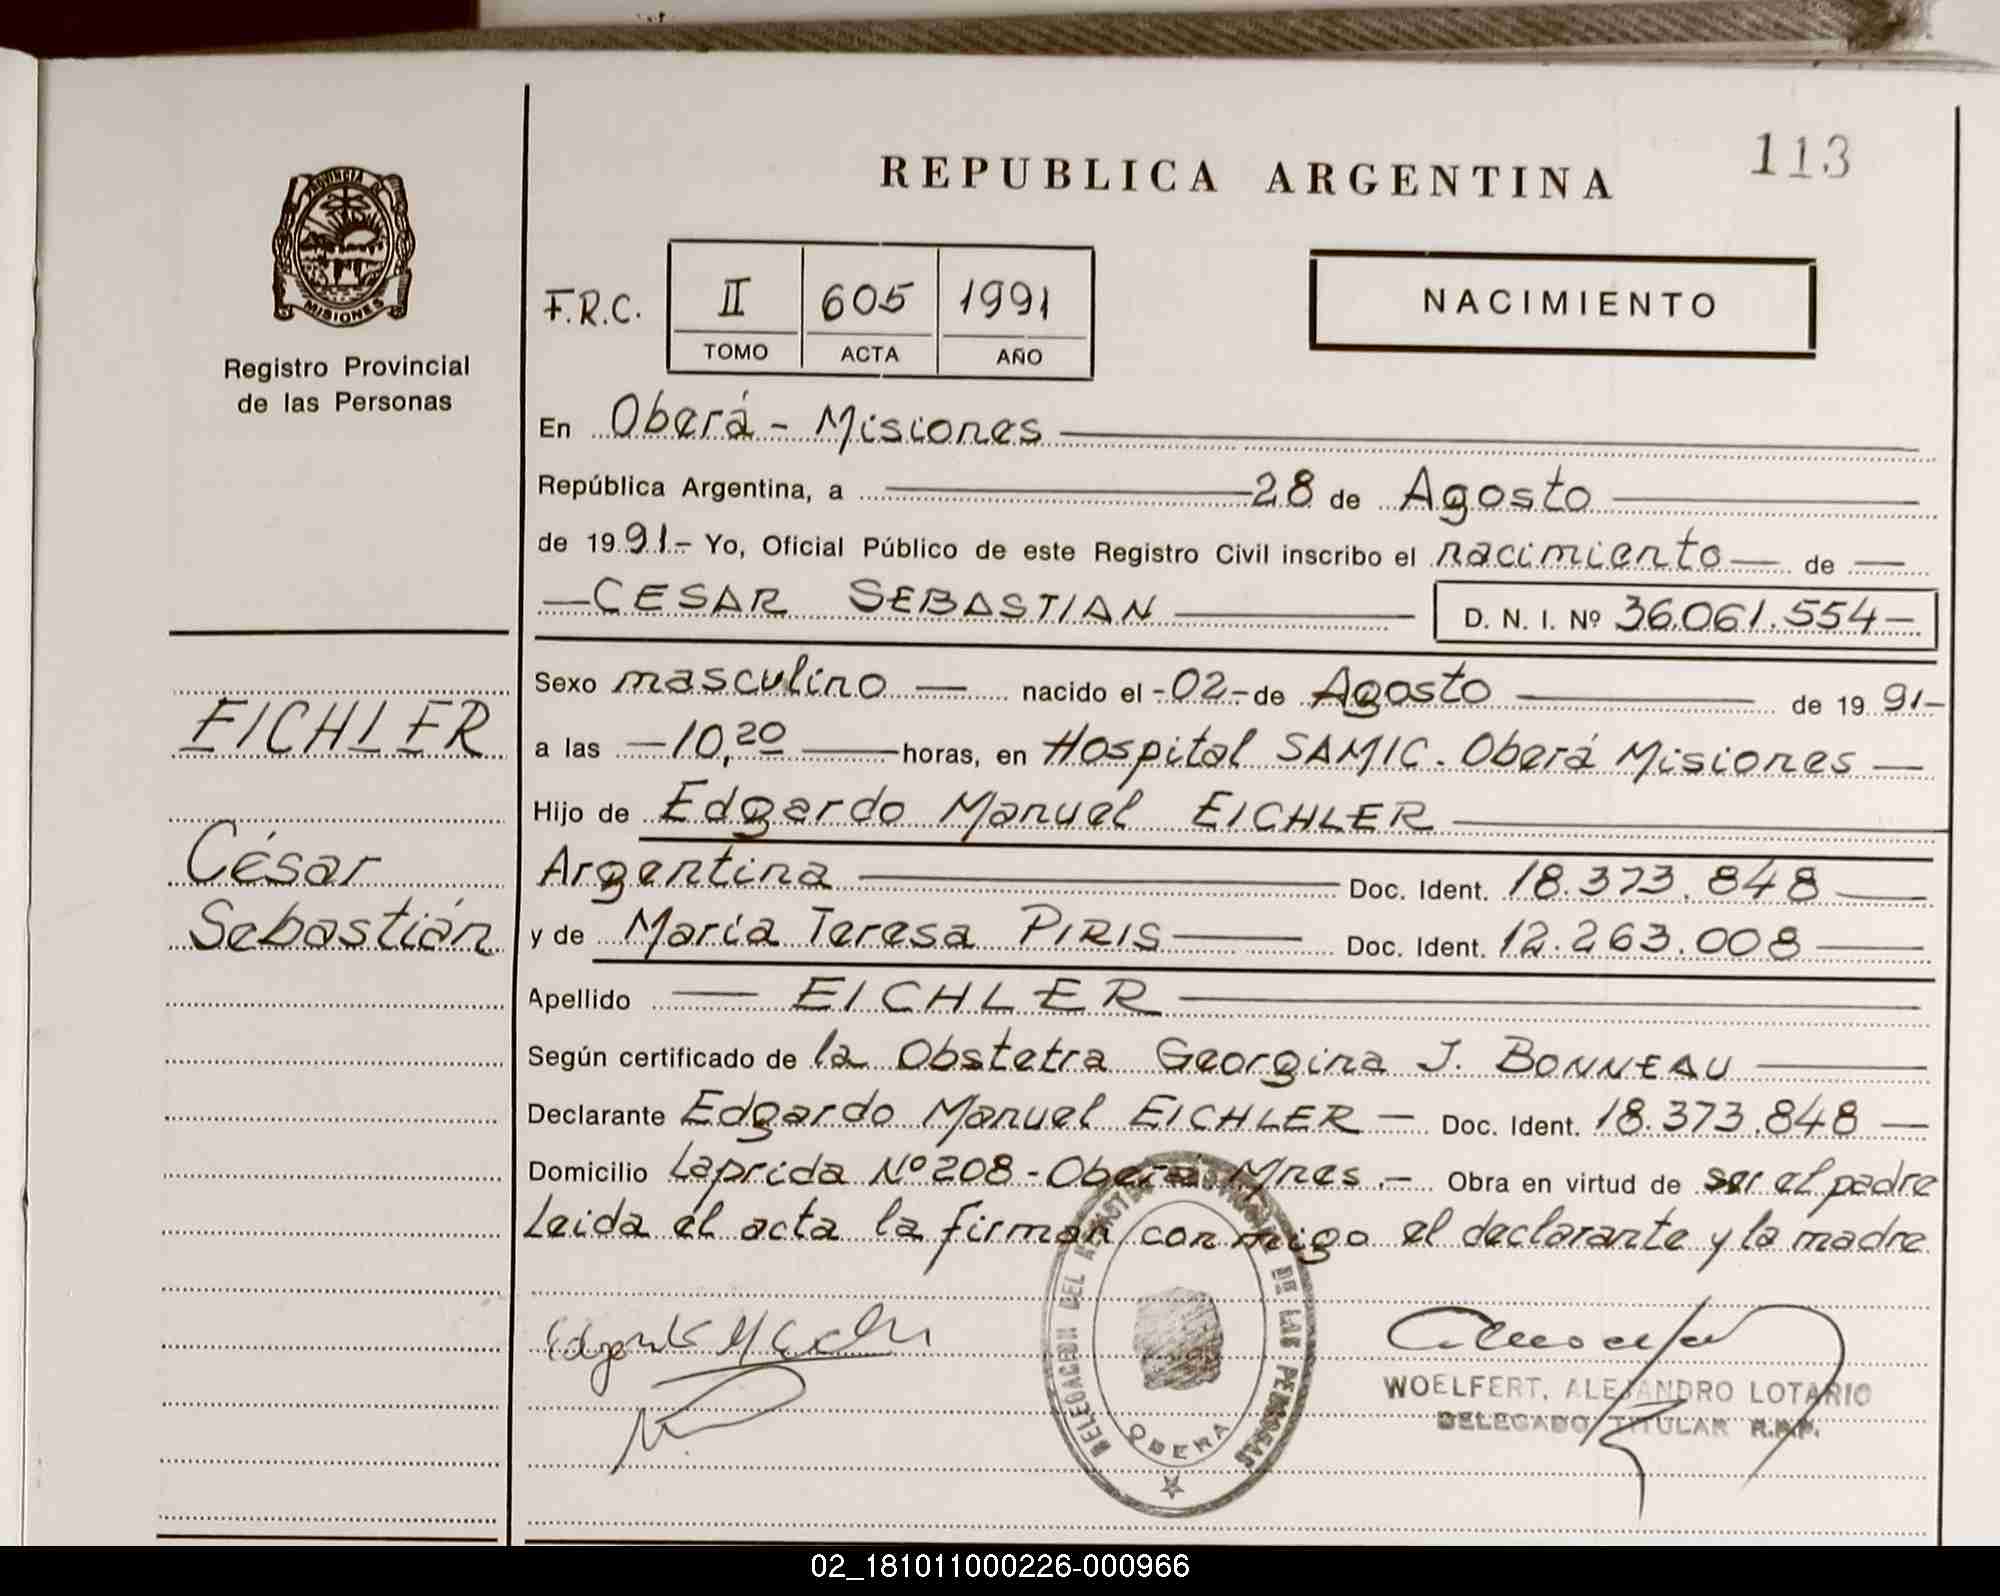 113
REPUBLICA ARGENTINA
PROVINCIA DE
MISIONES
Registro Provincial
de las Personas
F.R.C.
II 605 1991
TOMO ACTA AÑO
NACIMIENTO
En Oberá - Misiones
República Argentina, a 28 de Agosto
de 1991.- Yo, Oficial Público de este Registro Civil inscribo el nacimiento de
CESAR SEBASTIAN D. N. I. Nº 36.061.554-
EICHLER
César
Sebastián
Sexo masculino nacido el -02- de Agosto de 1991-
a las 10,20 horas, en Hospital SAMIC. Oberá Misiones
Hijo de Edgardo Manuel EICHLER
Argentina Doc. Ident. 18.373.848
y de María Teresa PIRIS Doc. Ident. 12.263.008
Apellido EICHLER
Según certificado de la Obstetra Georgina J. BONNEAU
Declarante Edgardo Manuel EICHLER Doc. Ident. 18.373.848
Domicilio Laprida Nº 208 - Oberá Mnes.- Obra en virtud de ser el padre
Leida el acta la firman conmigo el declarante y la madre
DELEGACION DEL REGISTRO DE LAS PERSONAS
OBERA
WOELFERT, ALEJANDRO LOTARIO
DELEGADO TITULAR R.P.P.
02_181011000226-000966